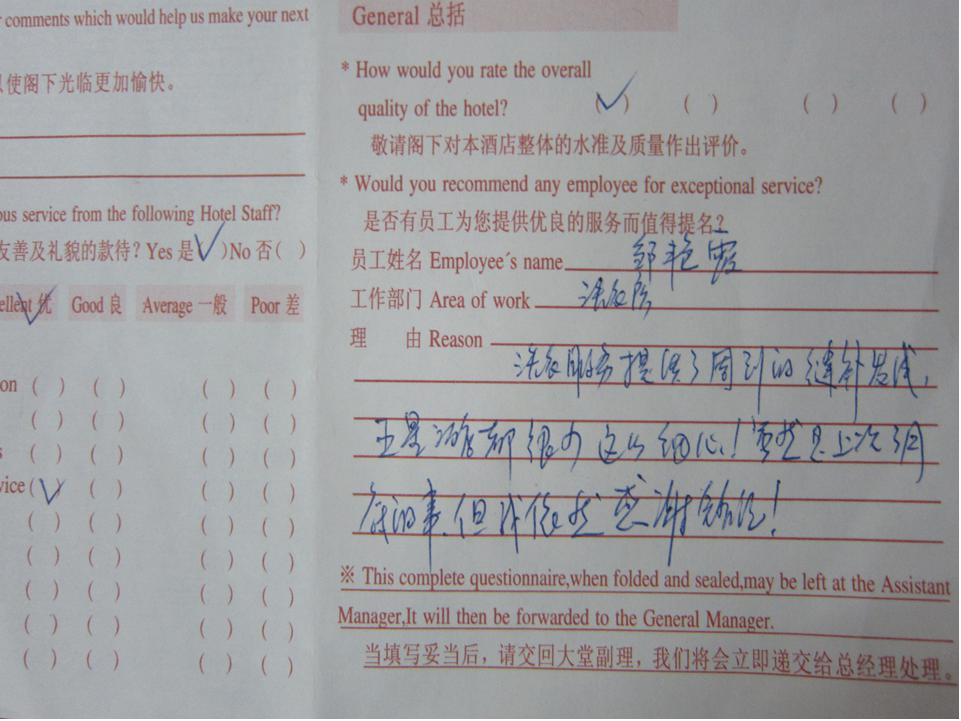 r comments which would help us make your next
以使阁下光临更加愉快。
ous service from the following Hotel Staff?
友善及礼貌的款待? Yes 是(✓)No 否( )
ellent 优 Good 良 Average 一般 Poor 差
on ( ) ( ) ( ) ( )
( ) ( ) ( ) ( )
s ( ) ( ) ( ) ( )
vice (✓) ( ) ( ) ( )
( ) ( ) ( ) ( )
( ) ( ) ( ) ( )
( ) ( ) ( ) ( )
( ) ( ) ( ) ( )
( ) ( ) ( ) ( )
General 总括
* How would you rate the overall
quality of the hotel? (✓) ( ) ( ) ( )
敬请阁下对本酒店整体的水准及质量作出评价。
* Would you recommend any employee for exceptional service?
是否有员工为您提供优良的服务而值得提名?
员工姓名 Employee´s name 邹艳霞
工作部门 Area of work 洗衣房
理 由 Reason
洗衣服务提供了周到的缝补
五星酒店都很少这么细心!虽然是上次
的事,但我依然感谢
※ This complete questionnaire,when folded and sealed,may be left at the Assistant
Manager,It will then be forwarded to the General Manager.
当填写妥当后，请交回大堂副理，我们将会立即递交给总经理处理。